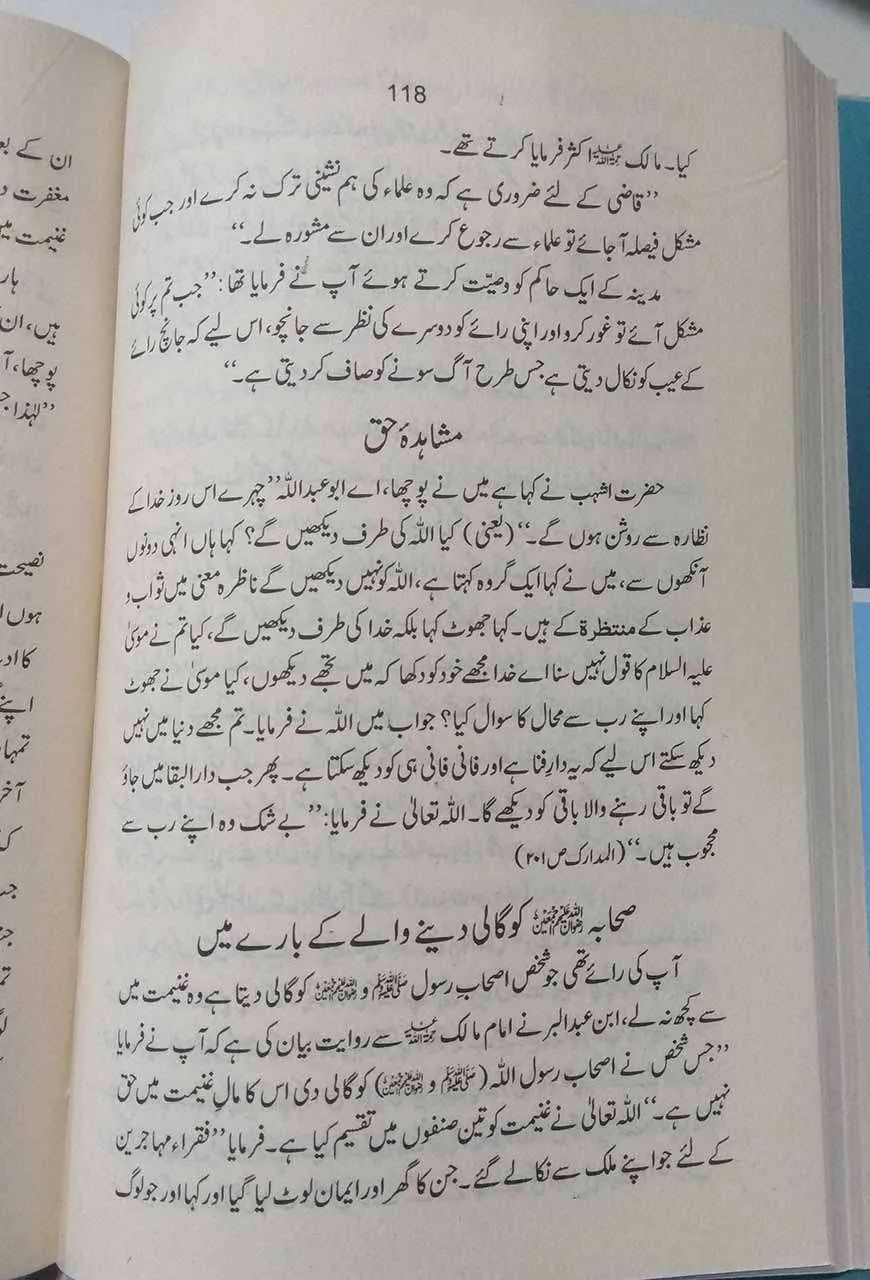 118
کیا۔ مالک رحمۃ اللہ علیہ اکثر فرمایا کرتے تھے۔
’’قاضی کے لئے ضروری ہے کہ وہ علماء کی ہم نشینی ترک نہ کرے اور جب کوئی
مشکل فیصلہ آ جائے تو علماء سے رجوع کرے اور ان سے مشورہ لے۔‘‘
مدینہ کے ایک حاکم کو وصیّت کرتے ہوئے آپ نے فرمایا تھا: ’’جب تم پر کوئی
مشکل آئے تو غور کرو اور اپنی رائے کو دوسرے کی نظر سے جانچو، اس لیے کہ جانچ رائے
کے عیب کو نکال دیتی ہے جس طرح آگ سونے کو صاف کر دیتی ہے۔‘‘
مشاہدۂ حق
حضرت اشہب نے کہا ہے میں نے پوچھا، اے ابو عبداللہ ’’چہرے اس روز خدا کے
نظارہ سے روشن ہوں گے۔‘‘ (یعنی) کیا اللہ کی طرف دیکھیں گے؟ کہا ہاں انہی دونوں
آنکھوں سے، میں نے کہا ایک گروہ کہتا ہے، اللہ کو نہیں دیکھیں گے ناظرہ معنی میں ثواب و
عذاب کے منتظرة کے ہیں۔ کہا جھوٹ کہا بلکہ خدا کی طرف دیکھیں گے، کیا تم نے موسیٰ
علیہ السلام کا قول نہیں سنا اے خدا مجھے خود کو دکھا کہ میں تجھے دیکھوں، کیا موسیٰ نے جھوٹ
کہا اور اپنے رب سے محال کا سوال کیا؟ جواب میں اللہ نے فرمایا۔ تم مجھے دنیا میں نہیں
دیکھ سکتے اس لیے کہ یہ دارِ فنا ہے اور فانی فانی ہی کو دیکھ سکتا ہے۔ پھر جب دار البقا میں جاؤ
گے تو باقی رہنے والا باقی کو دیکھے گا۔ اللہ تعالیٰ نے فرمایا: ’’بے شک وہ اپنے رب سے
محجوب ہیں۔‘‘ (المدارک ص ۲۰۱)
صحابہ رضوان اللہ علیہم اجمعین کو گالی دینے والے کے بارے میں
آپ کی رائے تھی جو شخص اصحابِ رسول ﷺ و رضوان اللہ علیہم اجمعین کو گالی دیتا ہے وہ غنیمت میں
سے کچھ نہ لے، ابن عبدالبر نے امام مالک رحمۃ اللہ علیہ سے روایت بیان کی ہے کہ آپ نے فرمایا
’’جس شخص نے اصحاب رسول اللہ (ﷺ و رضوان اللہ علیہم اجمعین) کو گالی دی اس کا مالِ غنیمت میں حق
نہیں ہے۔‘‘ اللہ تعالیٰ نے غنیمت کو تین صنفوں میں تقسیم کیا ہے۔ فرمایا ’’فقراء مہاجرین
کے لئے جو اپنے ملک سے نکالے گئے۔ جن کا گھر اور ایمان لوٹ لیا گیا اور کہا اور جو لوگ